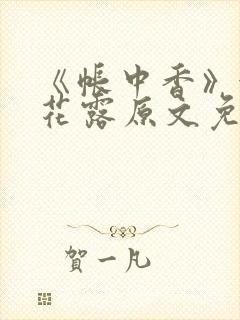 《帐中香》
花露原文免
賀一凡